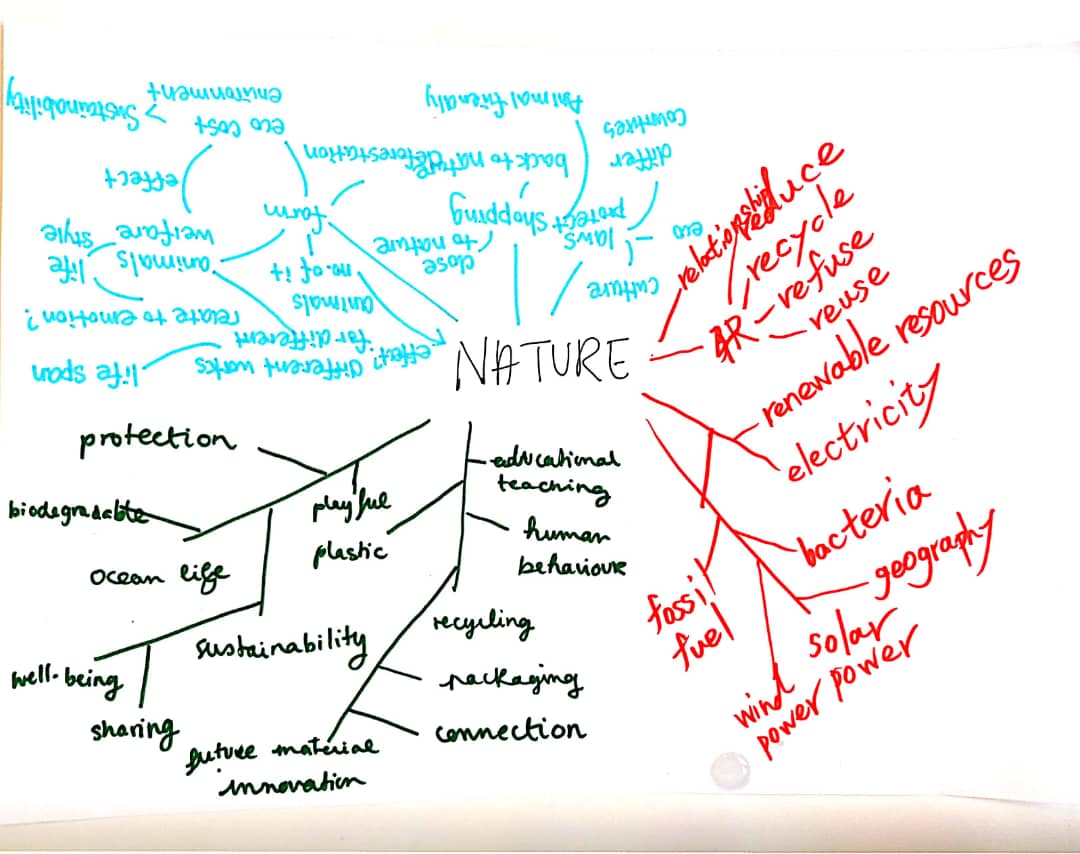 NATURE
Sustainability >
environment
eco cost
effect
deforestation
farm
welfare
animals
life
style
no. of it
animals
relate to emotion?
for different
different works
effect?
life span
Animal friendly
back to nature
shopping
close
to nature
protect
laws
culture
eco
differ
countries
relationship
reduce
recycle
4R
refuse
reuse
renewable resources
electricity
bacteria
geography
fossil
fuel
solar
power
wind
power
protection
biodegradable
playful
plastic
ocean life
well-being
sharing
educational
teaching
human
behaviour
recycling
sustainability
packaging
connection
future material
innovation